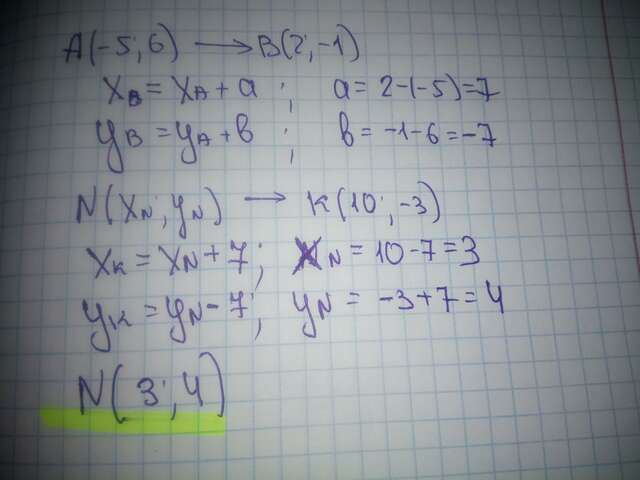 A(-5; 6) → B(2; -1)
xB = xA + a ; a = 2-(-5)=7
yB = yA + b ; b = -1-6=-7
N(xN; yN) → K(10; -3)
xK = xN + 7; xN = 10-7=3
yK = yN - 7; yN = -3+7=4
N(3; 4)